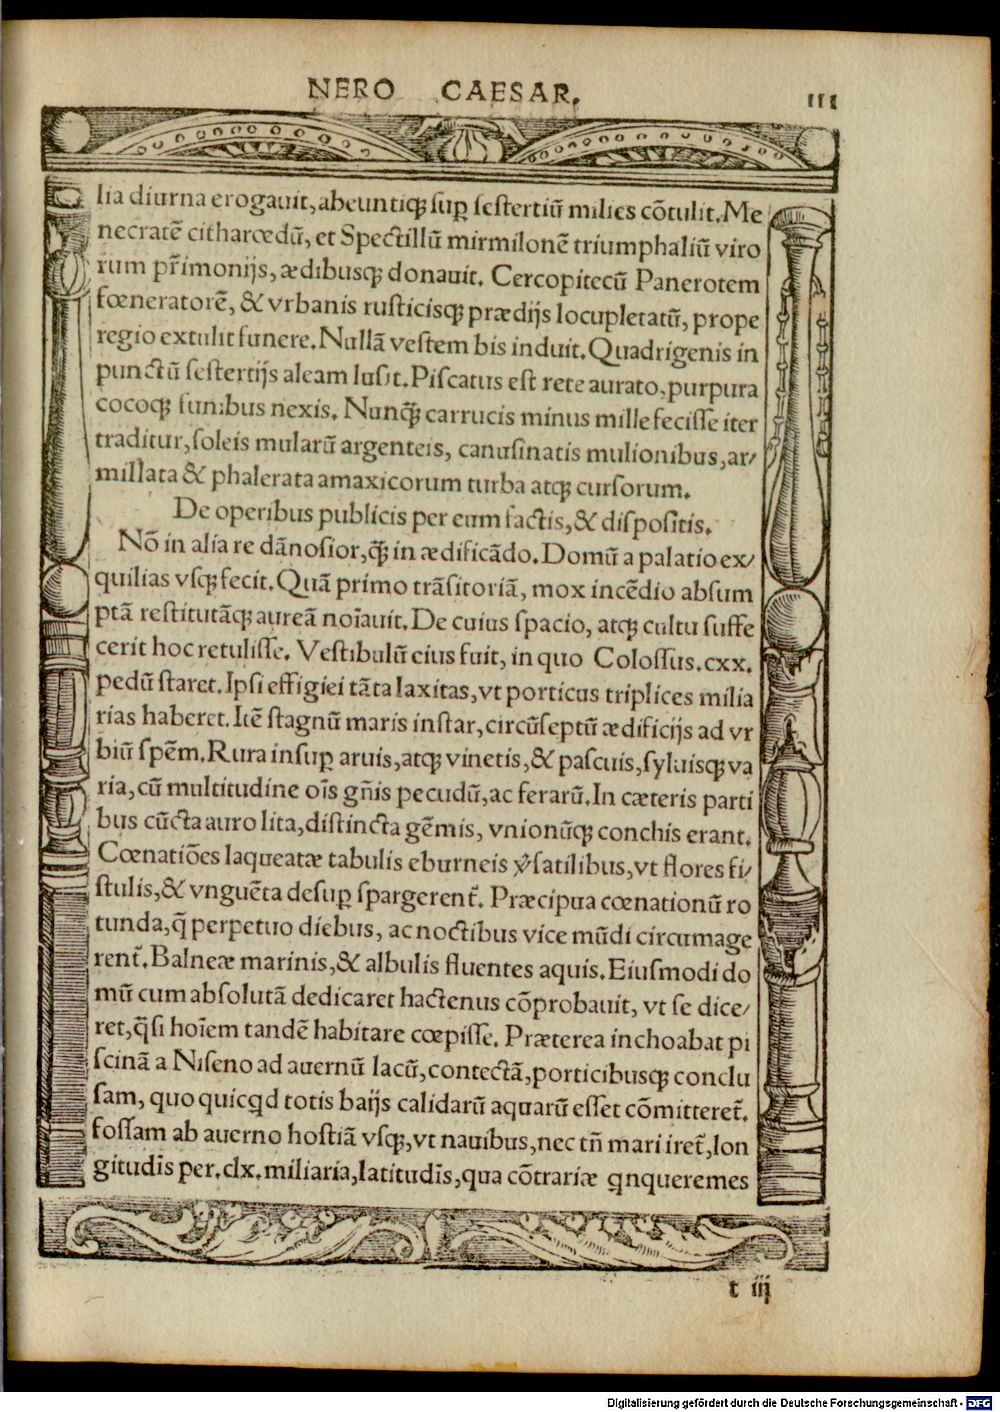 NERO CAESAR. III
lia diurna erogauit,abeuntiqꝫ suꝑ sestertiũ milies cõtulit.Me
necratẽ citharœdũ, et Spectillũ mirmilonẽ triumphaliũ viro
rum pr̃imonijs, ædibusqꝫ donauit. Cercopitecũ Panerotem
fœneratorẽ, & vrbanis rusticisqꝫ prædijs locupletatũ, prope
regio extulit funere. Nullã vestem bis induit. Quadrigenis in
punctũ sestertijs aleam lusit. Piscatus est rete aurato, purpura
cocoqꝫ funibus nexis. Nunq̃ꝫ carrucis minus mille fecisse iter
traditur, soleis mularũ argenteis, canusinatis mulionibus, ar/
millata & phalerata amaxicorum turba atqꝫ cursorum.
De operibus publicis per eum factis, & dispositis.
Nõ in alia re dãnosior, q̃ꝫ in ædificãdo. Domũ a palatio ex/
quilias vsqꝫ fecit. Quã primo trãsitoriã, mox incẽdio absum
ptã restitutãqꝫ aureã noĩauit. De cuius spacio, atqꝫ cultu suffe
cerit hoc retulisse. Vestibulũ eius fuit, in quo Colossus .cxx.
pedũ staret. Ipsi effigiei tãta laxitas, vt porticus triplices milia
rias haberet. Itẽ stagnũ maris instar, circũseptũ ædificijs ad vr
biũ spẽm. Rura insuꝑ aruis, atqꝫ vinetis, & pascuis, syluisqꝫ va
ria, cũ multitudine oĩs gñis pecudũ, ac ferarũ. In cæteris parti
bus cũcta auro lita, distincta gẽmis, vnionũqꝫ conchis erant.
Cœnatiões laqueatæ tabulis eburneis v̉satilibus, vt flores fi/
stulis, & vnguẽta desuꝑ spargerent̃. Præcipua cœnationũ ro
tunda, q̃ perpetuo diebus, ac noctibus vice mũdi circumage
rent̃. Balneæ marinis, & albulis fluentes aquis. Eiusmodi do
mũ cum absolutã dedicaret hactenus cõprobauit, vt se dice/
ret, q̃si hoĩem tandẽ habitare cœpisse. Præterea inchoabat pi
scinã a Niseno ad auernũ lacũ, contectã, porticibusqꝫ conclu
sam, quo quicꝗd totis baijs calidarũ aquarũ esset cõmitteret̃.
fossam ab auerno hostiã vsqꝫ, vt nauibus, nec tñ mari iret̃, lon
gitudĩs per .clx. miliaria, latitudĩs, qua cõtrariæ ꝗnqueremes
t iij
Digitalisierung gefördert durch die Deutsche Forschungsgemeinschaft - DFG